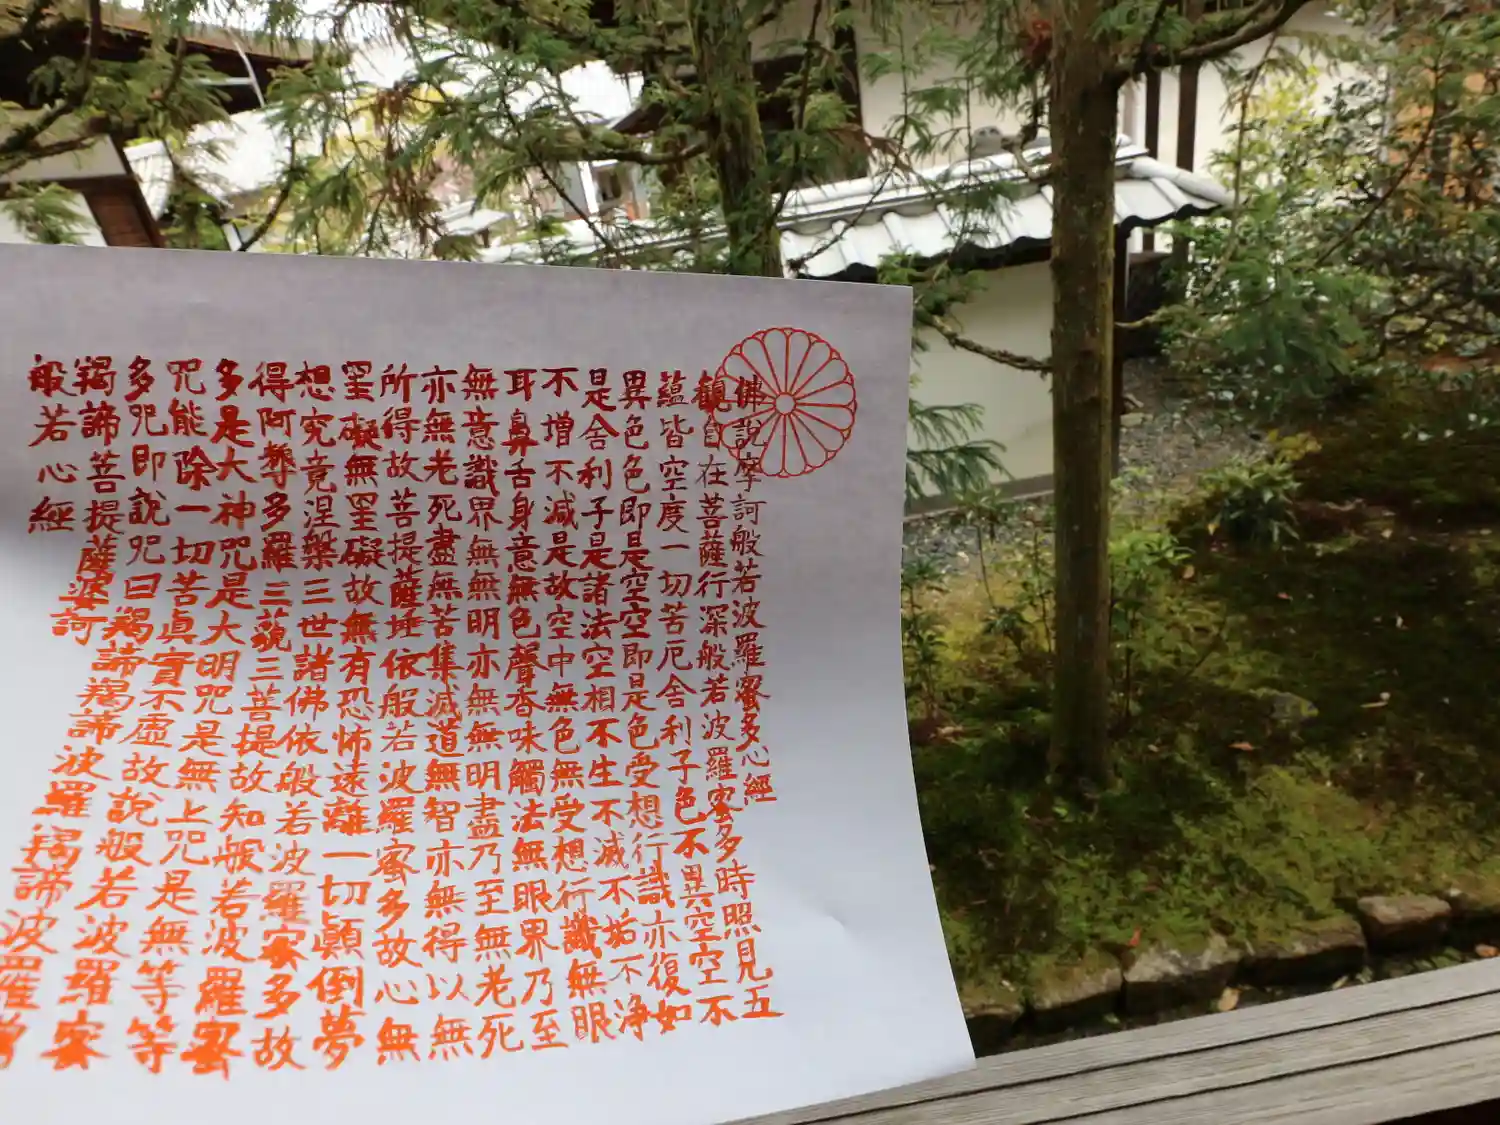 佛說摩訶般若波羅蜜多心經
觀自在菩薩行深般若波羅蜜多時照見五
蘊皆空度一切苦厄舍利子色不異空空不
異色色即是空空即是色受想行識亦復如
是舍利子是諸法空相不生不滅不垢不淨
不增不減是故空中無色無受想行識無眼
耳鼻舌身意無色聲香味觸法無眼界乃至
無意識界無無明亦無無明盡乃至無老死
亦無老死盡無苦集滅道無智亦無得以無
所得故菩提薩埵依般若波羅蜜多故心無
罣礙無罣礙故無有恐怖遠離一切顛倒夢
想究竟涅槃三世諸佛依般若波羅蜜多故
得阿耨多羅三藐三菩提故知般若波羅蜜
多是大神咒是大明咒是無上咒是無等等
咒能除一切苦眞實不虛故說般若波羅蜜
多咒即說咒曰羯諦羯諦波羅羯諦波羅僧
羯諦菩提薩婆訶
般若心經